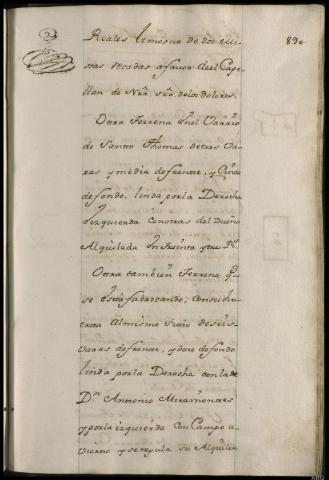 890
Reales limosna de dos mi
sas rezadas a favor del Cape
llan de Nrâ. Srâ. de los Dolores.
Otra Terrena Ynel Varrio
de Santo Thomas de tres va
ras y media de frente, y Cinco
de fondo, linda por la Derecha
Izquierda con otras del Dueño
Alquilada In treinta y tres Rs.
Otra tambien Terrena q.
se está fabricando,
al mismo Sitio de seis
varas de frente, y doce de fondo
linda por la Derecha con la de
Dn. Antonio Miramontes
y por la izquierda con Campo a
vierto y se regula su Alquiler